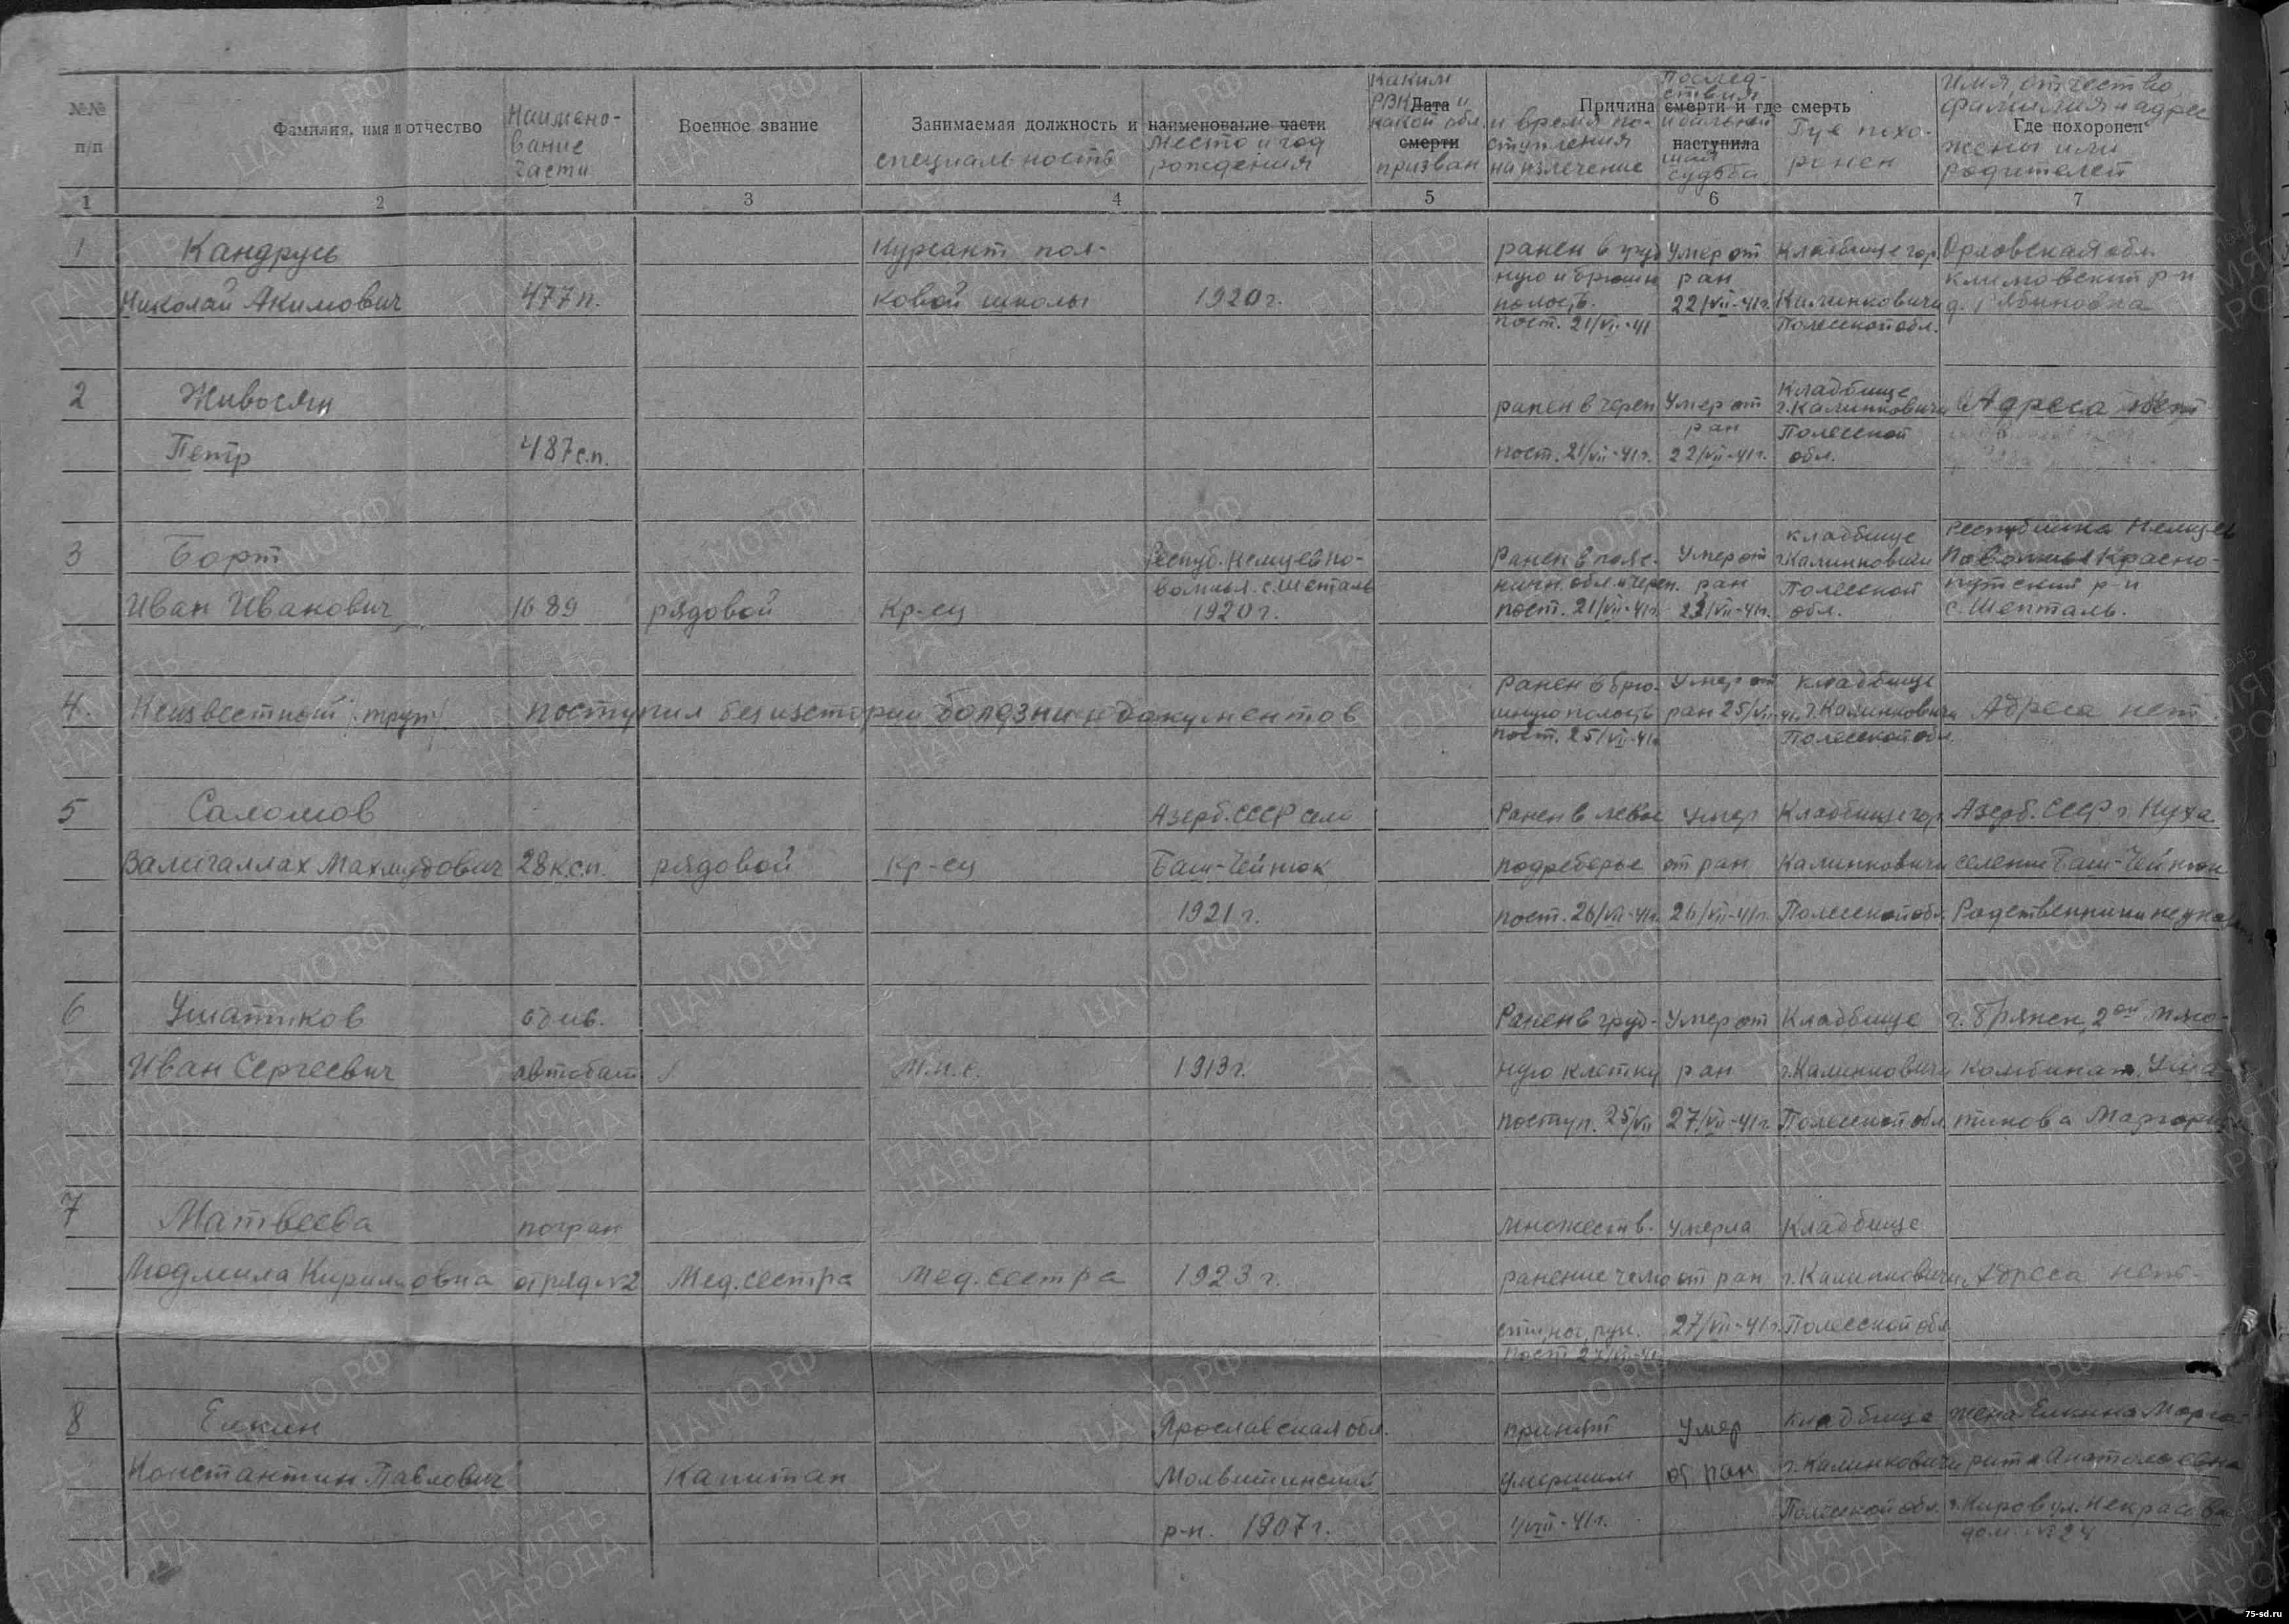 №№ п/п
Фамилия, имя и отчество
Наимено-
вание
части
Военное звание
Занимаемая должность и наименование части
специальность
Место и год
рождения
каким
РВК и
какой обл.
призван
Дата
смерти
Причина смерти и где смерть
наступила
и время по-
ступления
на излечение
Послед-
ствия
и дальней
шая
судьба
Где похо-
ронен
Имя, отчество
фамилия и адрес
Где похоронен
жены или
родителей
1 2 3 4 5 6 7
1
Кандрусь
Николай Акимович
477 п.
Курсант пол-
ковой школы
1920 г.
ранен в груд
ную и брюшн
полость.
пост. 21/VII-41
Умер от
ран
22/VII-41г.
Кладбище гор.
Калинковичи
Полесской обл.
Орловская обл.
Климовский р-н
д.
2
Живосяги
Петр
487 с.п.
ранен в череп
пост. 21/VII-41г.
Умер от
ран
22/VII-41г.
Кладбище
г. Калинковичи
Полесской
обл.
Адреса нет
3
Борт
Иван Иванович
1689
рядовой
Кр-ец
Респуб. Немцев По-
волжья с. Шенталь
1920 г.
Ранен в пояс.
нижн. обл. и череп.
пост. 21/VII-41г.
Умер от
ран
22/VII-41г.
кладбище
г. Калинковичи
Полесской
обл.
Республика Немцев
Поволжья Красно-
кутский р-н
с. Шенталь.
4.
Неизвестный /труп/
поступил без истории болезни и документов
Ранен в брю-
шную полость
пост. 25/VII-41г
Умер от
ран 25/VII-41г.
кладбище
г. Калинковичи
Полесской обл.
Адреса нет.
5
Саломов
Валигаллах Махмудович
28 к.с.п.
рядовой
кр-ец
Азерб. СССР село
Баш-Чейнюк
1921 г.
Ранен в левое
подреберье
пост. 26/VII-41г.
Умер
от ран
26/VII-41г.
Кладбище гор.
Калинковичи
Полесской обл.
Азерб. СССР г. Нуха
селение Баш-Чейнюк
Родственники не указ
6
Ушатиков
Иван Сергеевич
автобат
М.п.с.
1913 г.
Ранен в груд-
ную клетку
поступ. 25/VII
Умер от
ран
27/VII-41г.
Кладбище
г. Калинковичи
Полесской обл.
г. Брянск, 2ой Мясо-
комбинат. Уша-
тикова Маргорита
7
Матвеева
Людмила Кирилловна
погран
отряд №2
Мед. сестра
Мед. сестра
1923 г.
множеств.
ранение челю
сти, ног, рук.
пост 27/VII-41
Умерла
от ран
27/VII-41г.
Кладбище
г. Калинковичи
Полесской обл
Адреса нет.
8
Елкин
Константин Павлович
Капитан
Ярославская обл.
Молвитинский
р-н. 1907 г.
принят
умершим
VII-41г.
Умер
от ран
кладбище
г. Калинковичи
Полесской обл.
жена Елкина Марга-
рита Анатольевна
г. Киров ул. Некрасова
дом №24
ЦАМО.РФ
ПАМЯТЬ
НАРОДА
75-sd.ru